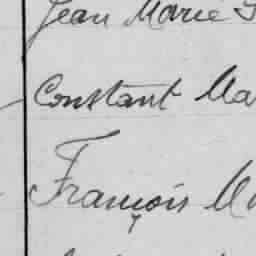 Jean Marie
Constant Ma
François M